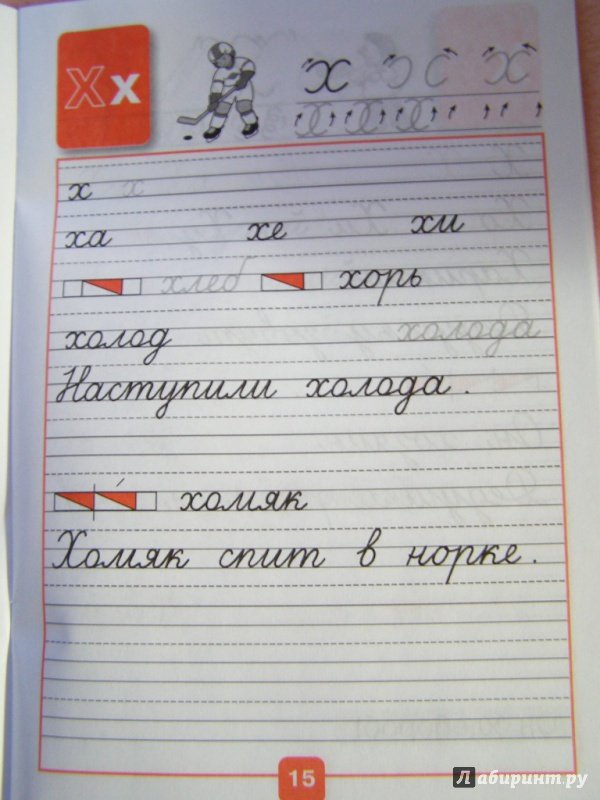 Х х
х с с х
х х х
х х
ха хе хи
хлеб хорь
холод холода
Наступили холода.
хомяк
Хомяк спит в норке.
15
Лабиринт.ру